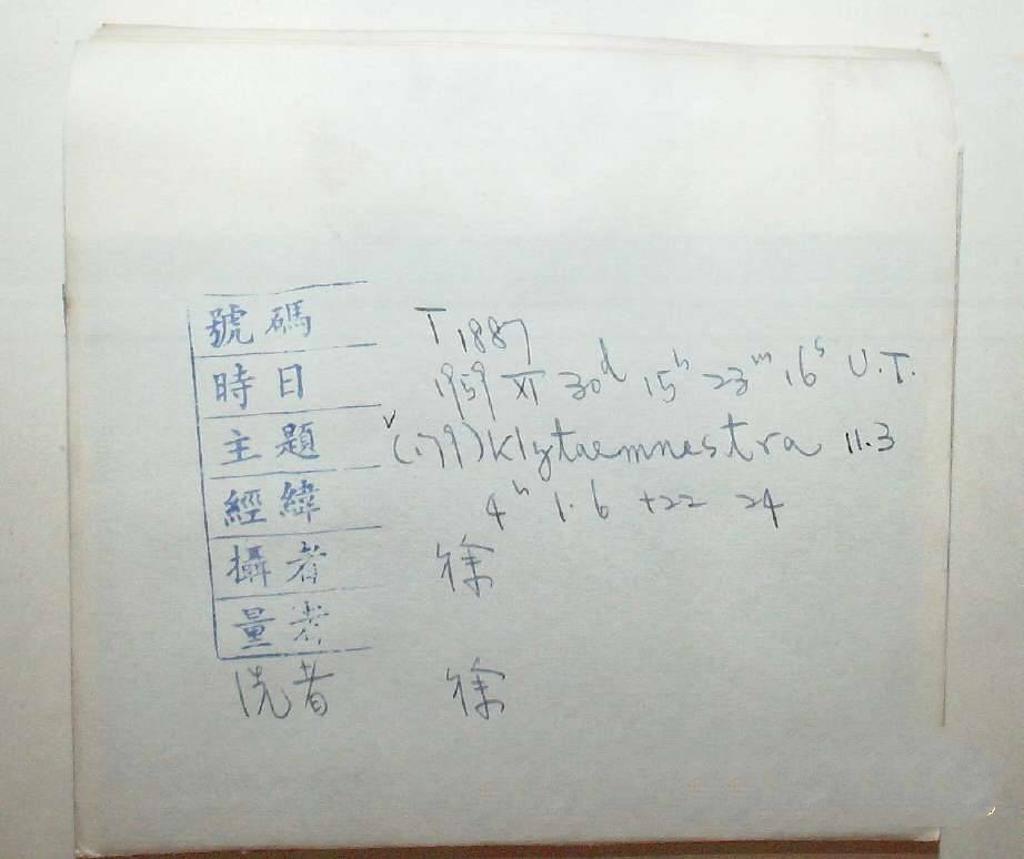 號碼 T 1887
時日 1959 XI 30d 15h 23m 16s U.T.
主題 v (179) Klytaemnestra 11.3
經緯 4h 1.6 +22 24
攝者 徐
量者
洗者 徐